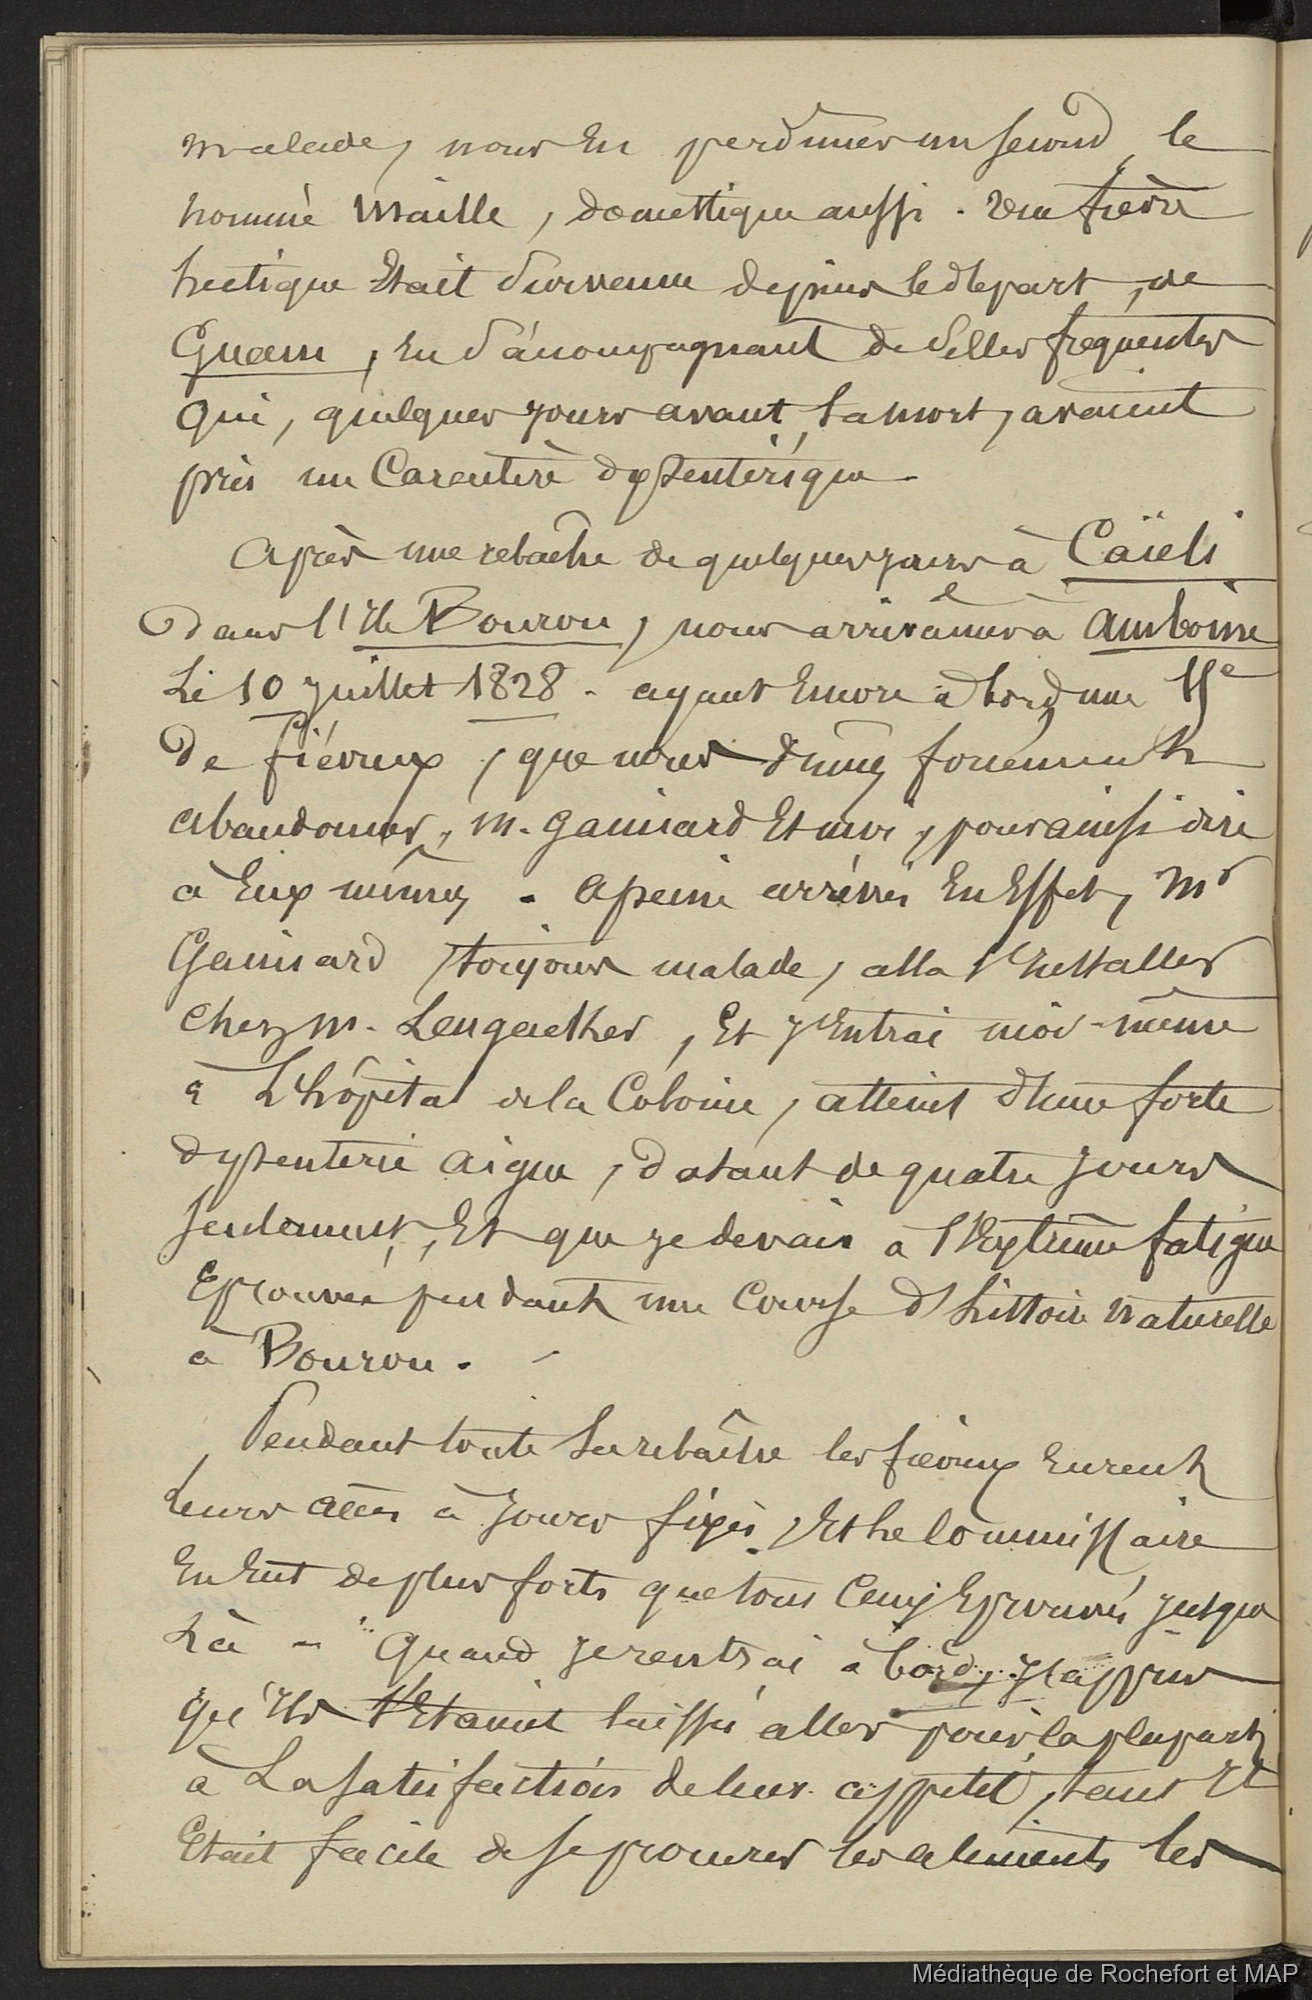 malade, nous en perdimes un second, le
nommé Maille, domestique aussi. Une fièvre
hectique était survenue depuis le départ, de
Guam, en s'accompagnant de selles fréquentes
qui, quelques jours avant, sa mort, avaient
pris un caractère dyssentérique.
Après une relache de quelques jours à Caïeli
dans l'Ile Bourou, nous arrivâmes à Amboine
le 10 juillet 1828. ayant encore à bord une 15e
de fiévreux, que nous dûmes forcément
abandonner, M. Gaimard et moi, pour ainsi dire
à eux mêmes. A peine arrivés en effet, Mr
Gaimard, toujours malade, alla s'installer
chez M. Lengacker, et j'entrai moi-même
à l'hôpital de la Colonie, atteint d'une forte
dyssenterie aigue, datant de quatre jours
seulement, et que je devais à l'extrême fatigue
éprouvée pendant une course d'histoire naturelle
à Bourou.
Pendant toute la relâche les fiévreux eurent
leurs accès à jours fixes, et le Commissaire
en eut de plus forts que tous ceux éprouvés jusque
là - Quand je rentrai à bord, j'appris
qu'ils s'étaient laissés aller pour la plupart
à la satisfaction de leur appétit, tant il
était facile de se procurer les aliments les
Médiathèque de Rochefort et MAP